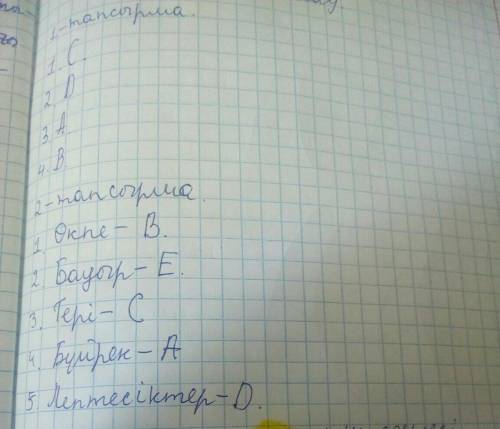 1-тапсырма.
1. C.
2. D
3. A.
4. B
2-тапсырма.
1. Өкпе- B.
2. Бауыр- E.
3. Тері- C
4. Бүйрек- A
5. Лептесіктер-D.